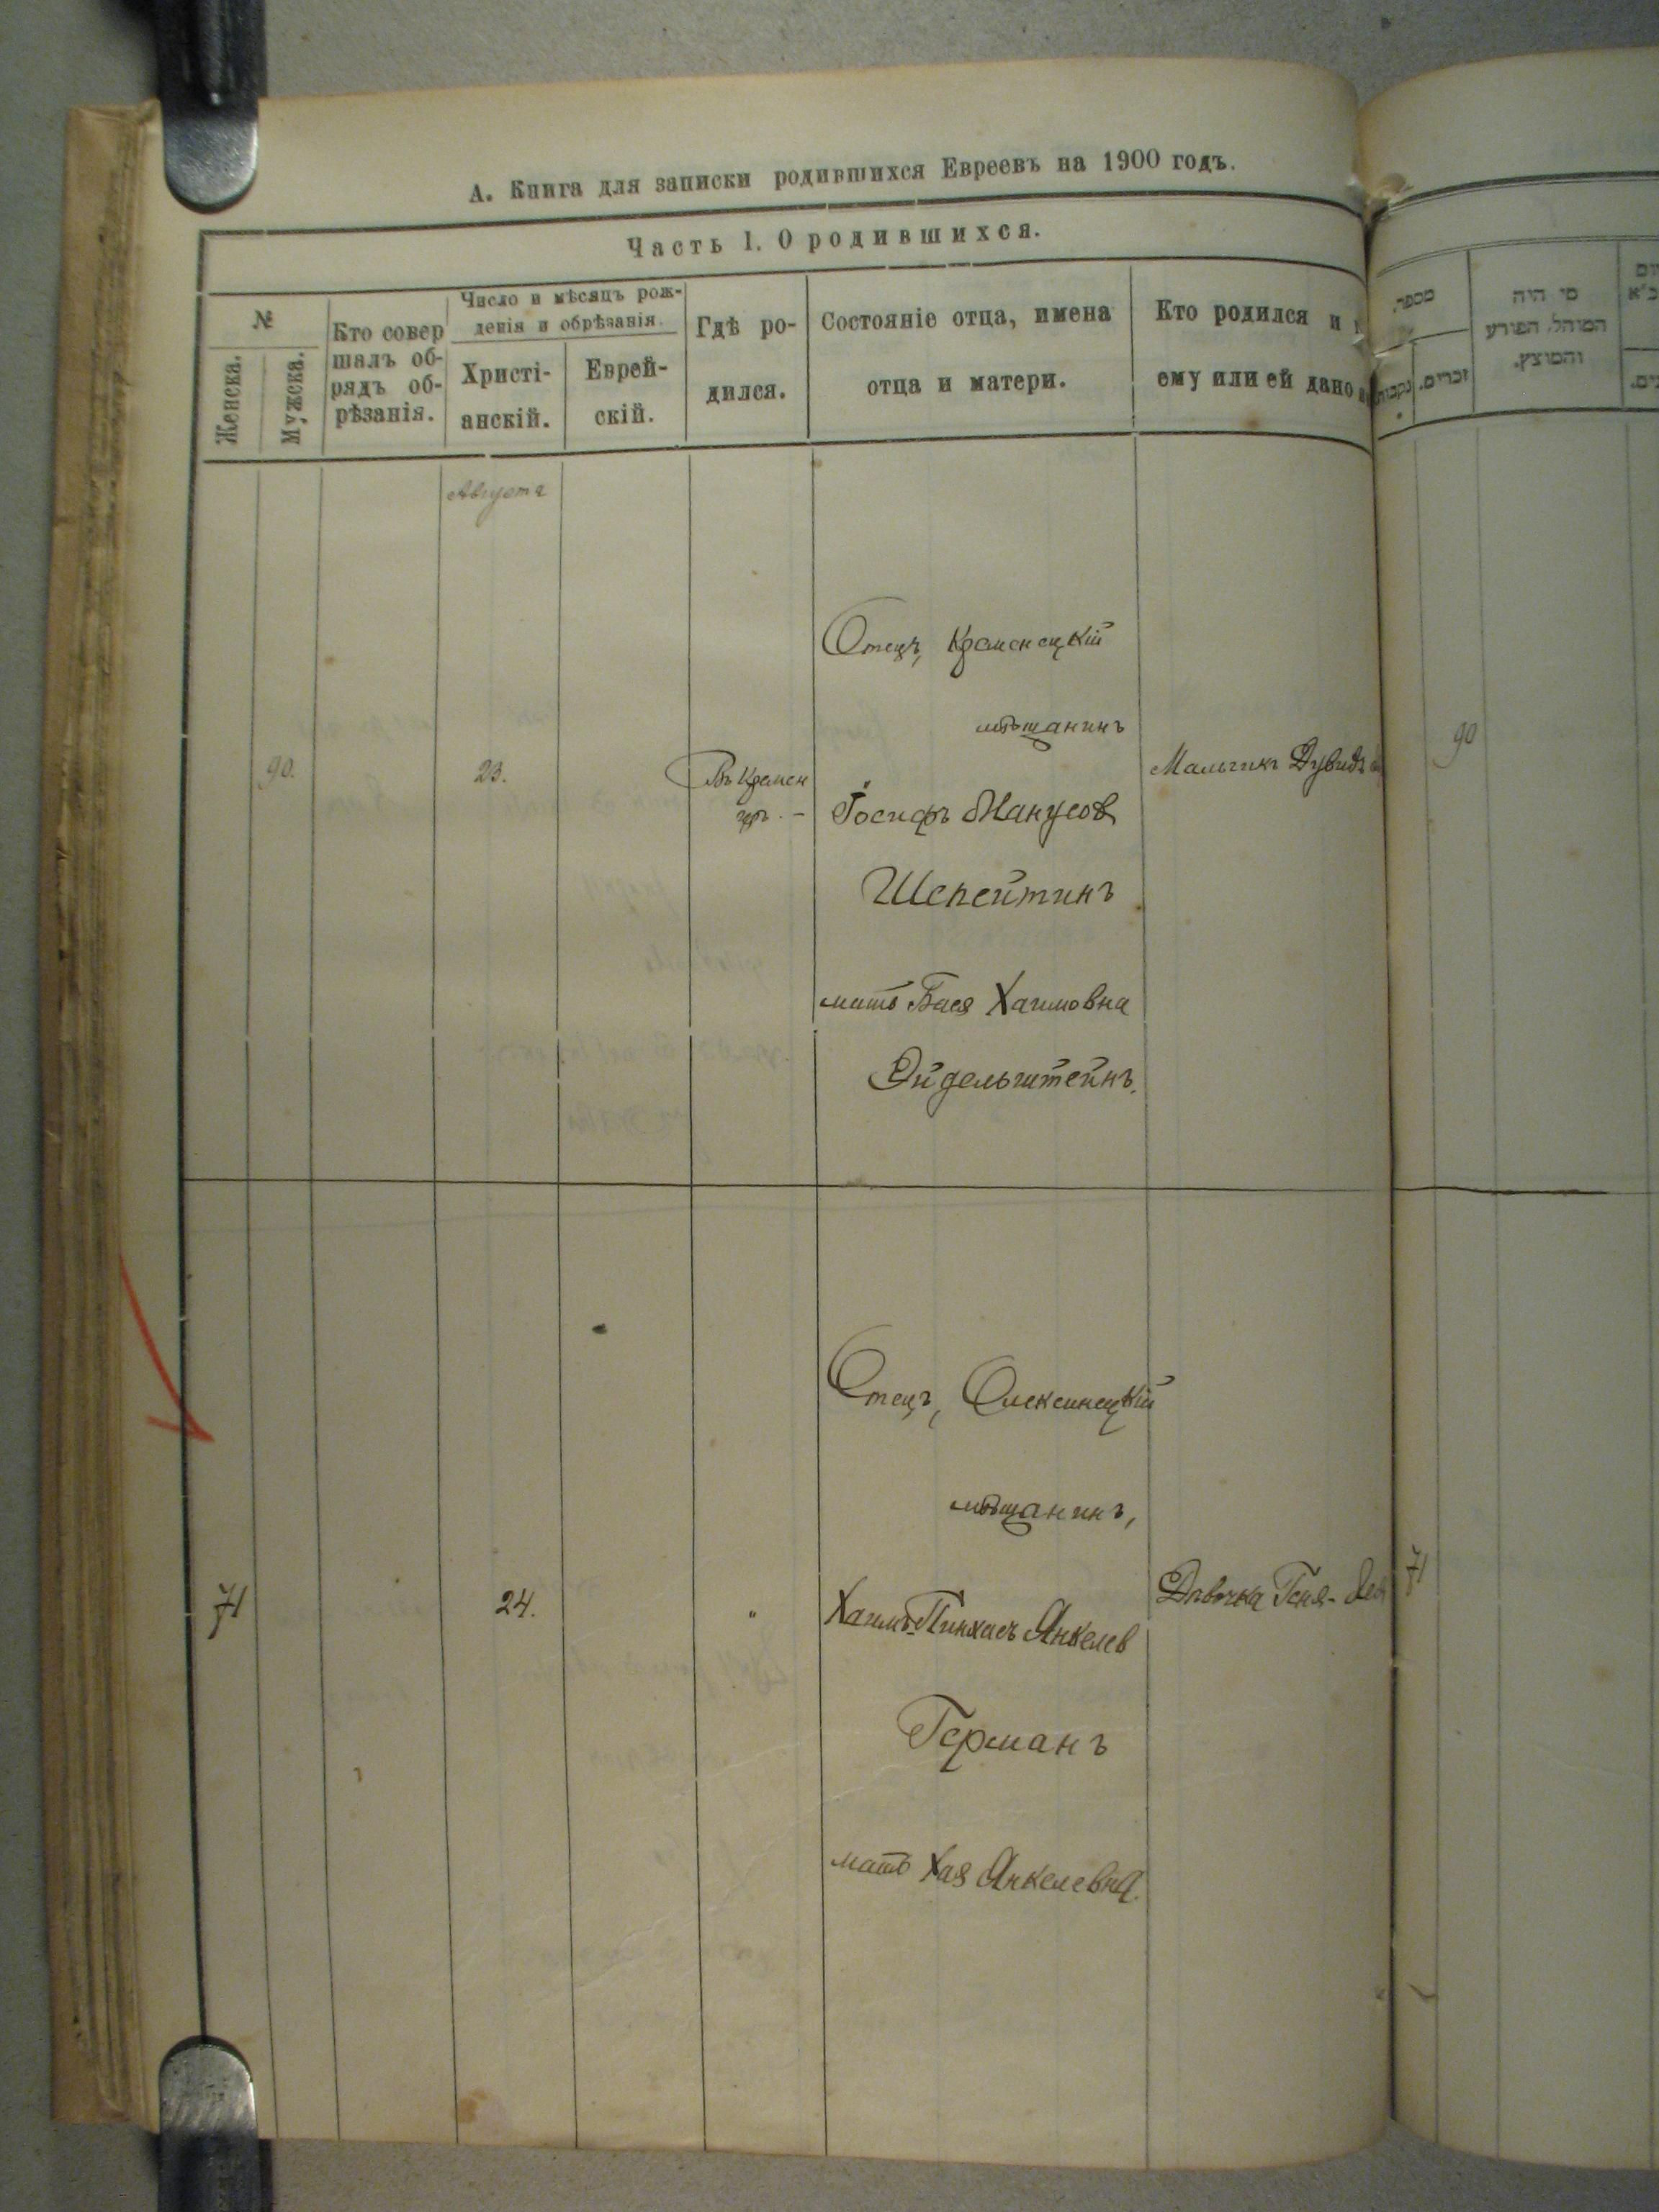 А. Книга для записки родившихся Евреевъ на 1900 годъ.
Часть I. О родившихся.
№
Женска.
Мужска.
Кто совер
шалъ об-
рядъ об-
рѣзанія.
Число и мѣсяцъ рож-
денія и обрѣзанія.
Христі-
анскій.
Еврей-
скій.
Гдѣ ро-
дился.
Состояніе отца, имена
отца и матери.
Кто родился и
ему или ей дано
מספר
זכרים.
מי היה
המוהל, הפורע
והמוצץ.
Августа
90.
23.
Въ Кремен
Отецъ, Кременецкій
мѣщанинъ
Іосифъ Манусов
Шепейтинъ
мать Бася Хаимовна
Эйдельштейнъ.
Мальчикъ Дувидъ
90
71
24.
"
Отецъ, Олексинецкій
мѣщанинъ,
Хаимъ-Пинхасъ Янкелев
Германъ
мать Хая Янкелевна.
Дѣвочка Геня-
71